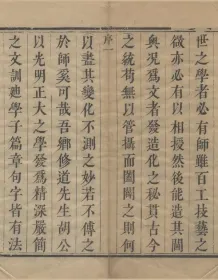 世之學者必有師雖百工技藝之
㣲亦必有以相授然後能造其閫
奧况爲文者發造化之秘貫古今
之統苟無以管攝而闔闢之則何
序一
以盡其變化不測之妙若不傳之
於師奚可哉吾鄉修道先生胡公
以光明正大之學發爲精深嚴簡
之文訓廸學子篇章句字皆有法